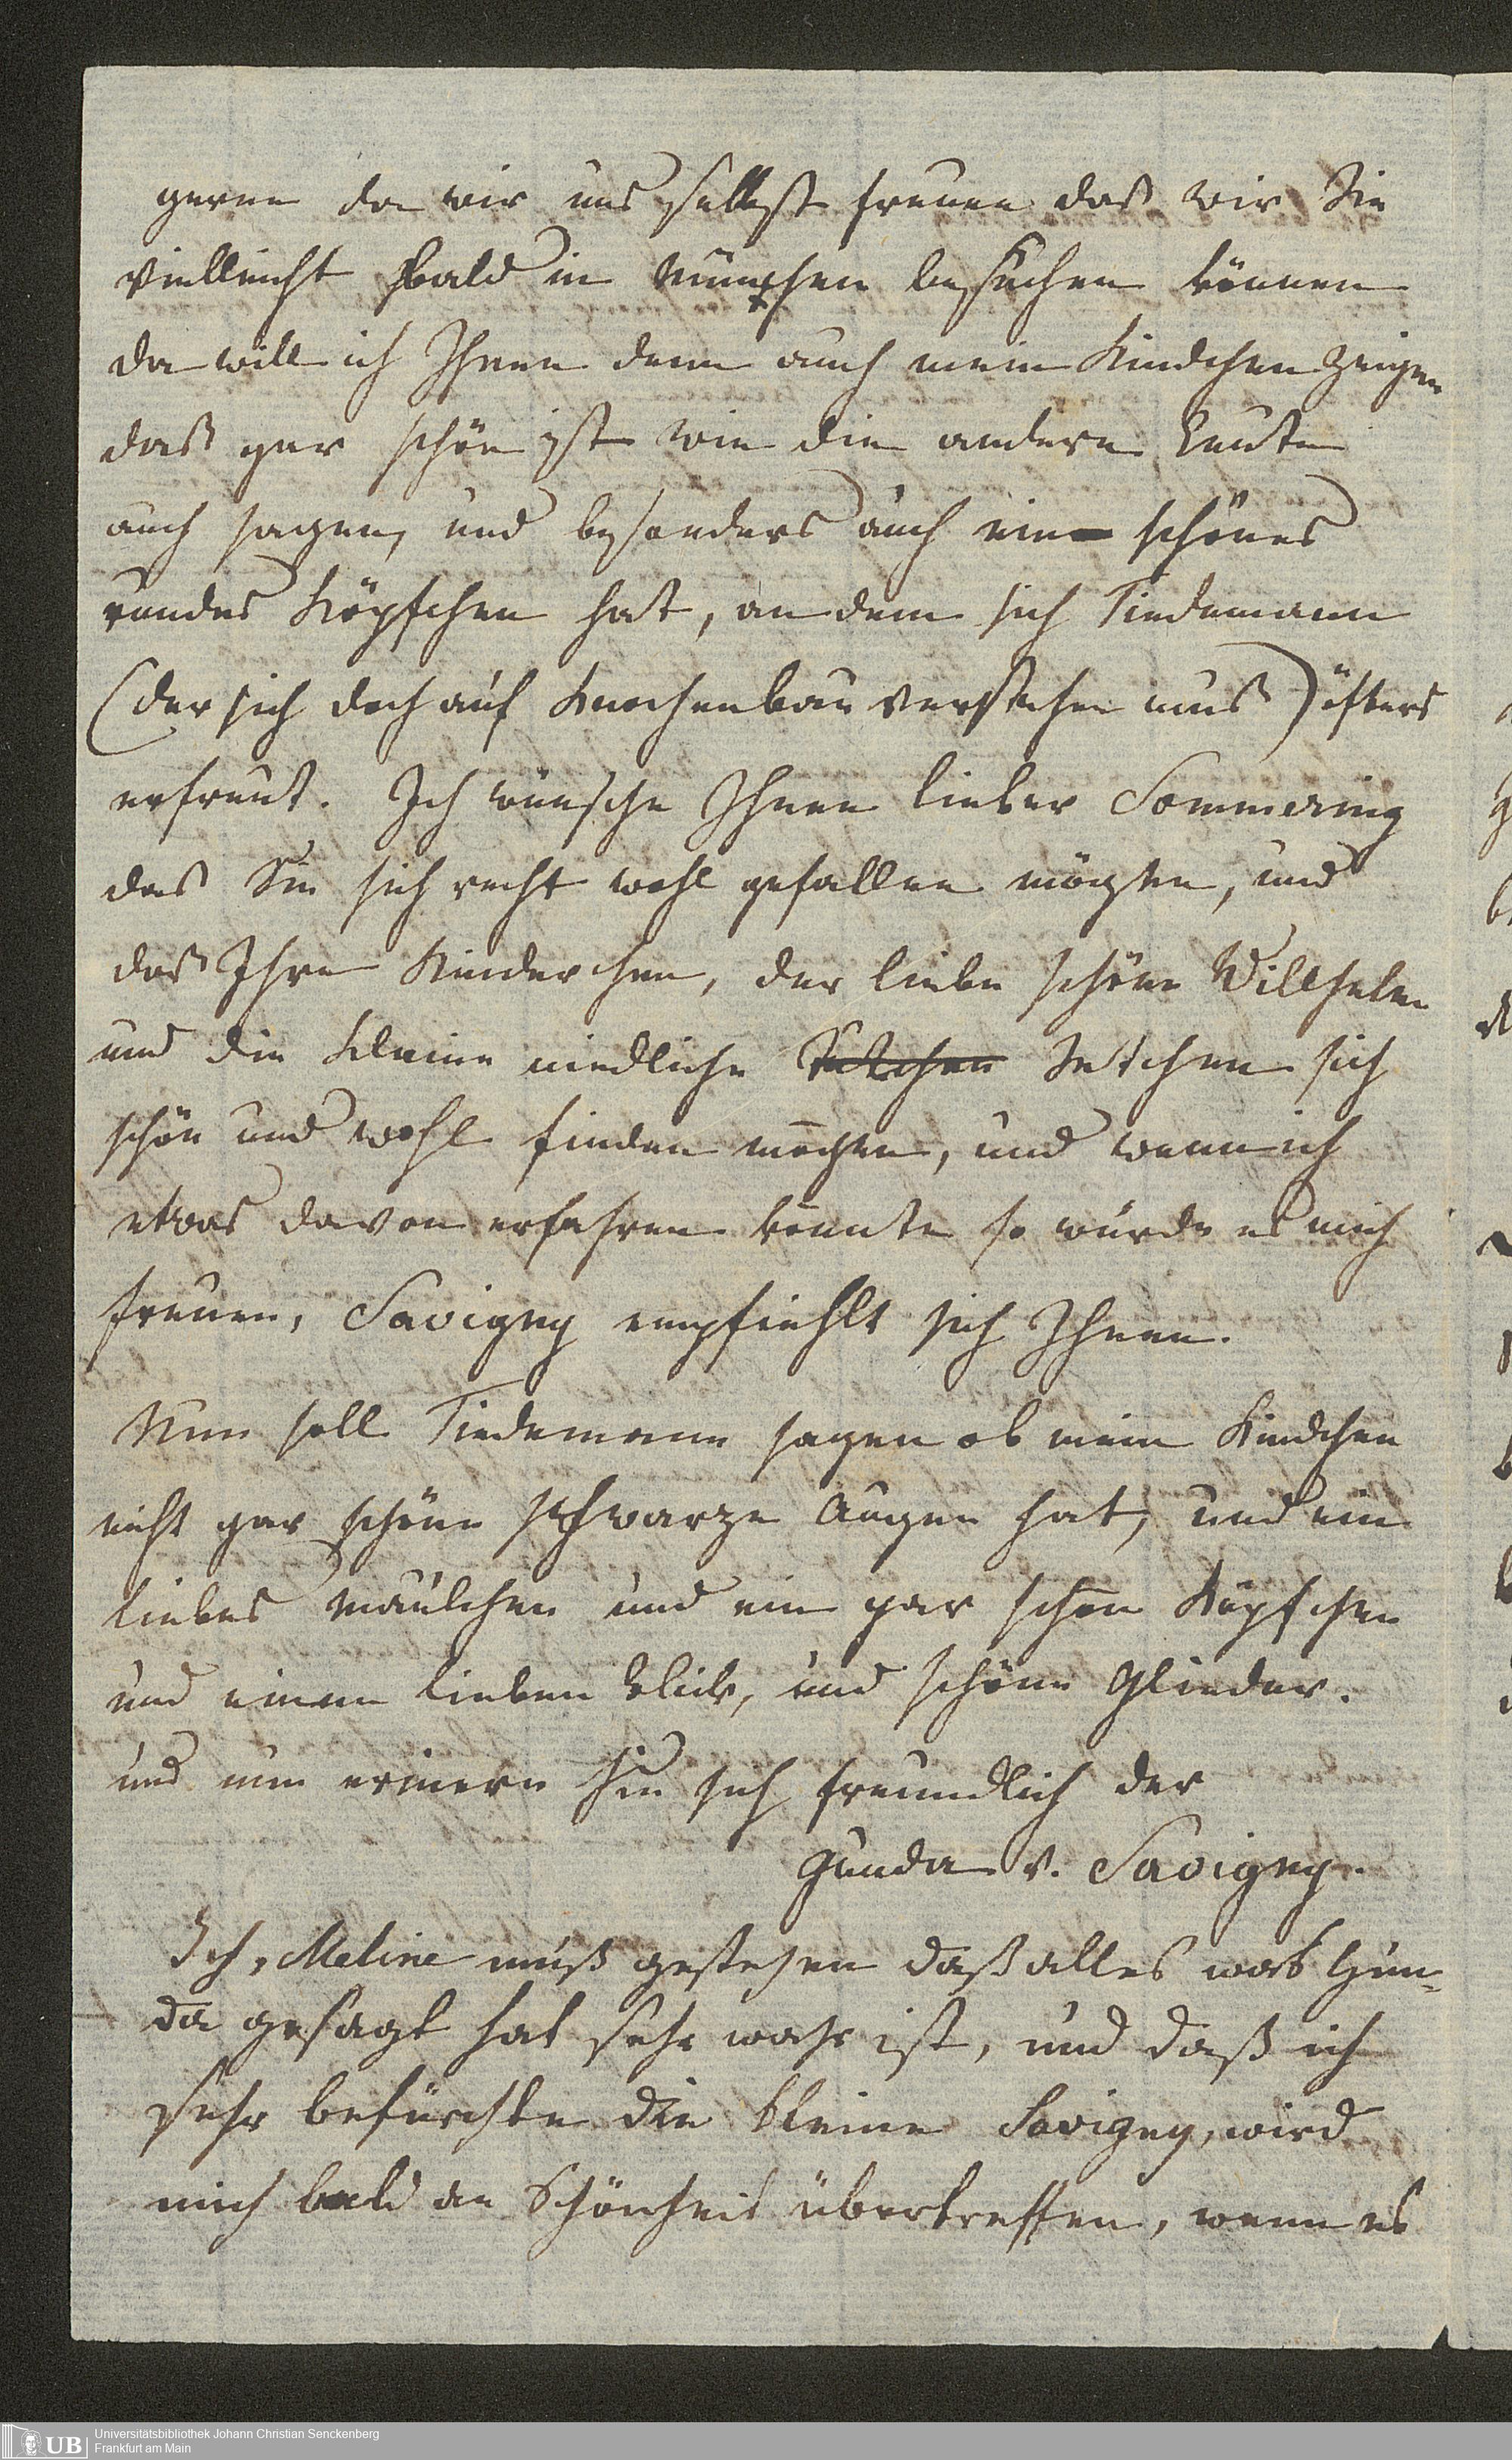 gerne da wir uns selbst freuen das wir Sie
vielleicht bald in München besuchen können
da will ich Ihnen denn auch mein Kindchen zeigen
daß gar schön ist wie die andern Leute
auch sagen, und besonders auch ein schönes
rundes Köpfchen hat, an dem sich Tiedemann
(der sich doch auf Knochenbau verstehen mus) öfters
erfreut. Ich wünsche Ihnen lieber Sommering
das Sie sich recht wohl gefallen mögten, und
daß Ihre Kinderchen, der liebe schöne Willhelm
und die kleine niedliche Setchen sich
schön und wohl finden mögten, und wenn ich
etwas davon erfahren könnte so würde es mich
freuen, Savigny empfiehlt sich Ihnen.
Nun soll Tiedemann sagen ob mein Kindchen
nicht gar schöne schwarze Augen hat, und ein
liebes Mäulchen und ein gar schön Köpfchen
und einen lieben Blick, und schöne Glieder.
und nun erinern Sie sich freundlich der
Gunda v. Savigny.
Ich, Meline muß gestehen daß alles was Gun-
da gesagt hat sehr wahr ist, und daß ich
sehr befürchte die kleine Savigny, wird
mich bald an Schönheit übertreffen, wenn es
UB
Universitätsbibliothek Johann Christian Senckenberg
Frankfurt am Main